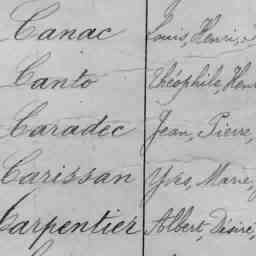 Canac Louis, Henri,
Canto Théophile, Henri
Caradec Jean, Pierre,
Carissan Yves, Marie,
Carpentier Albert, Désiré,